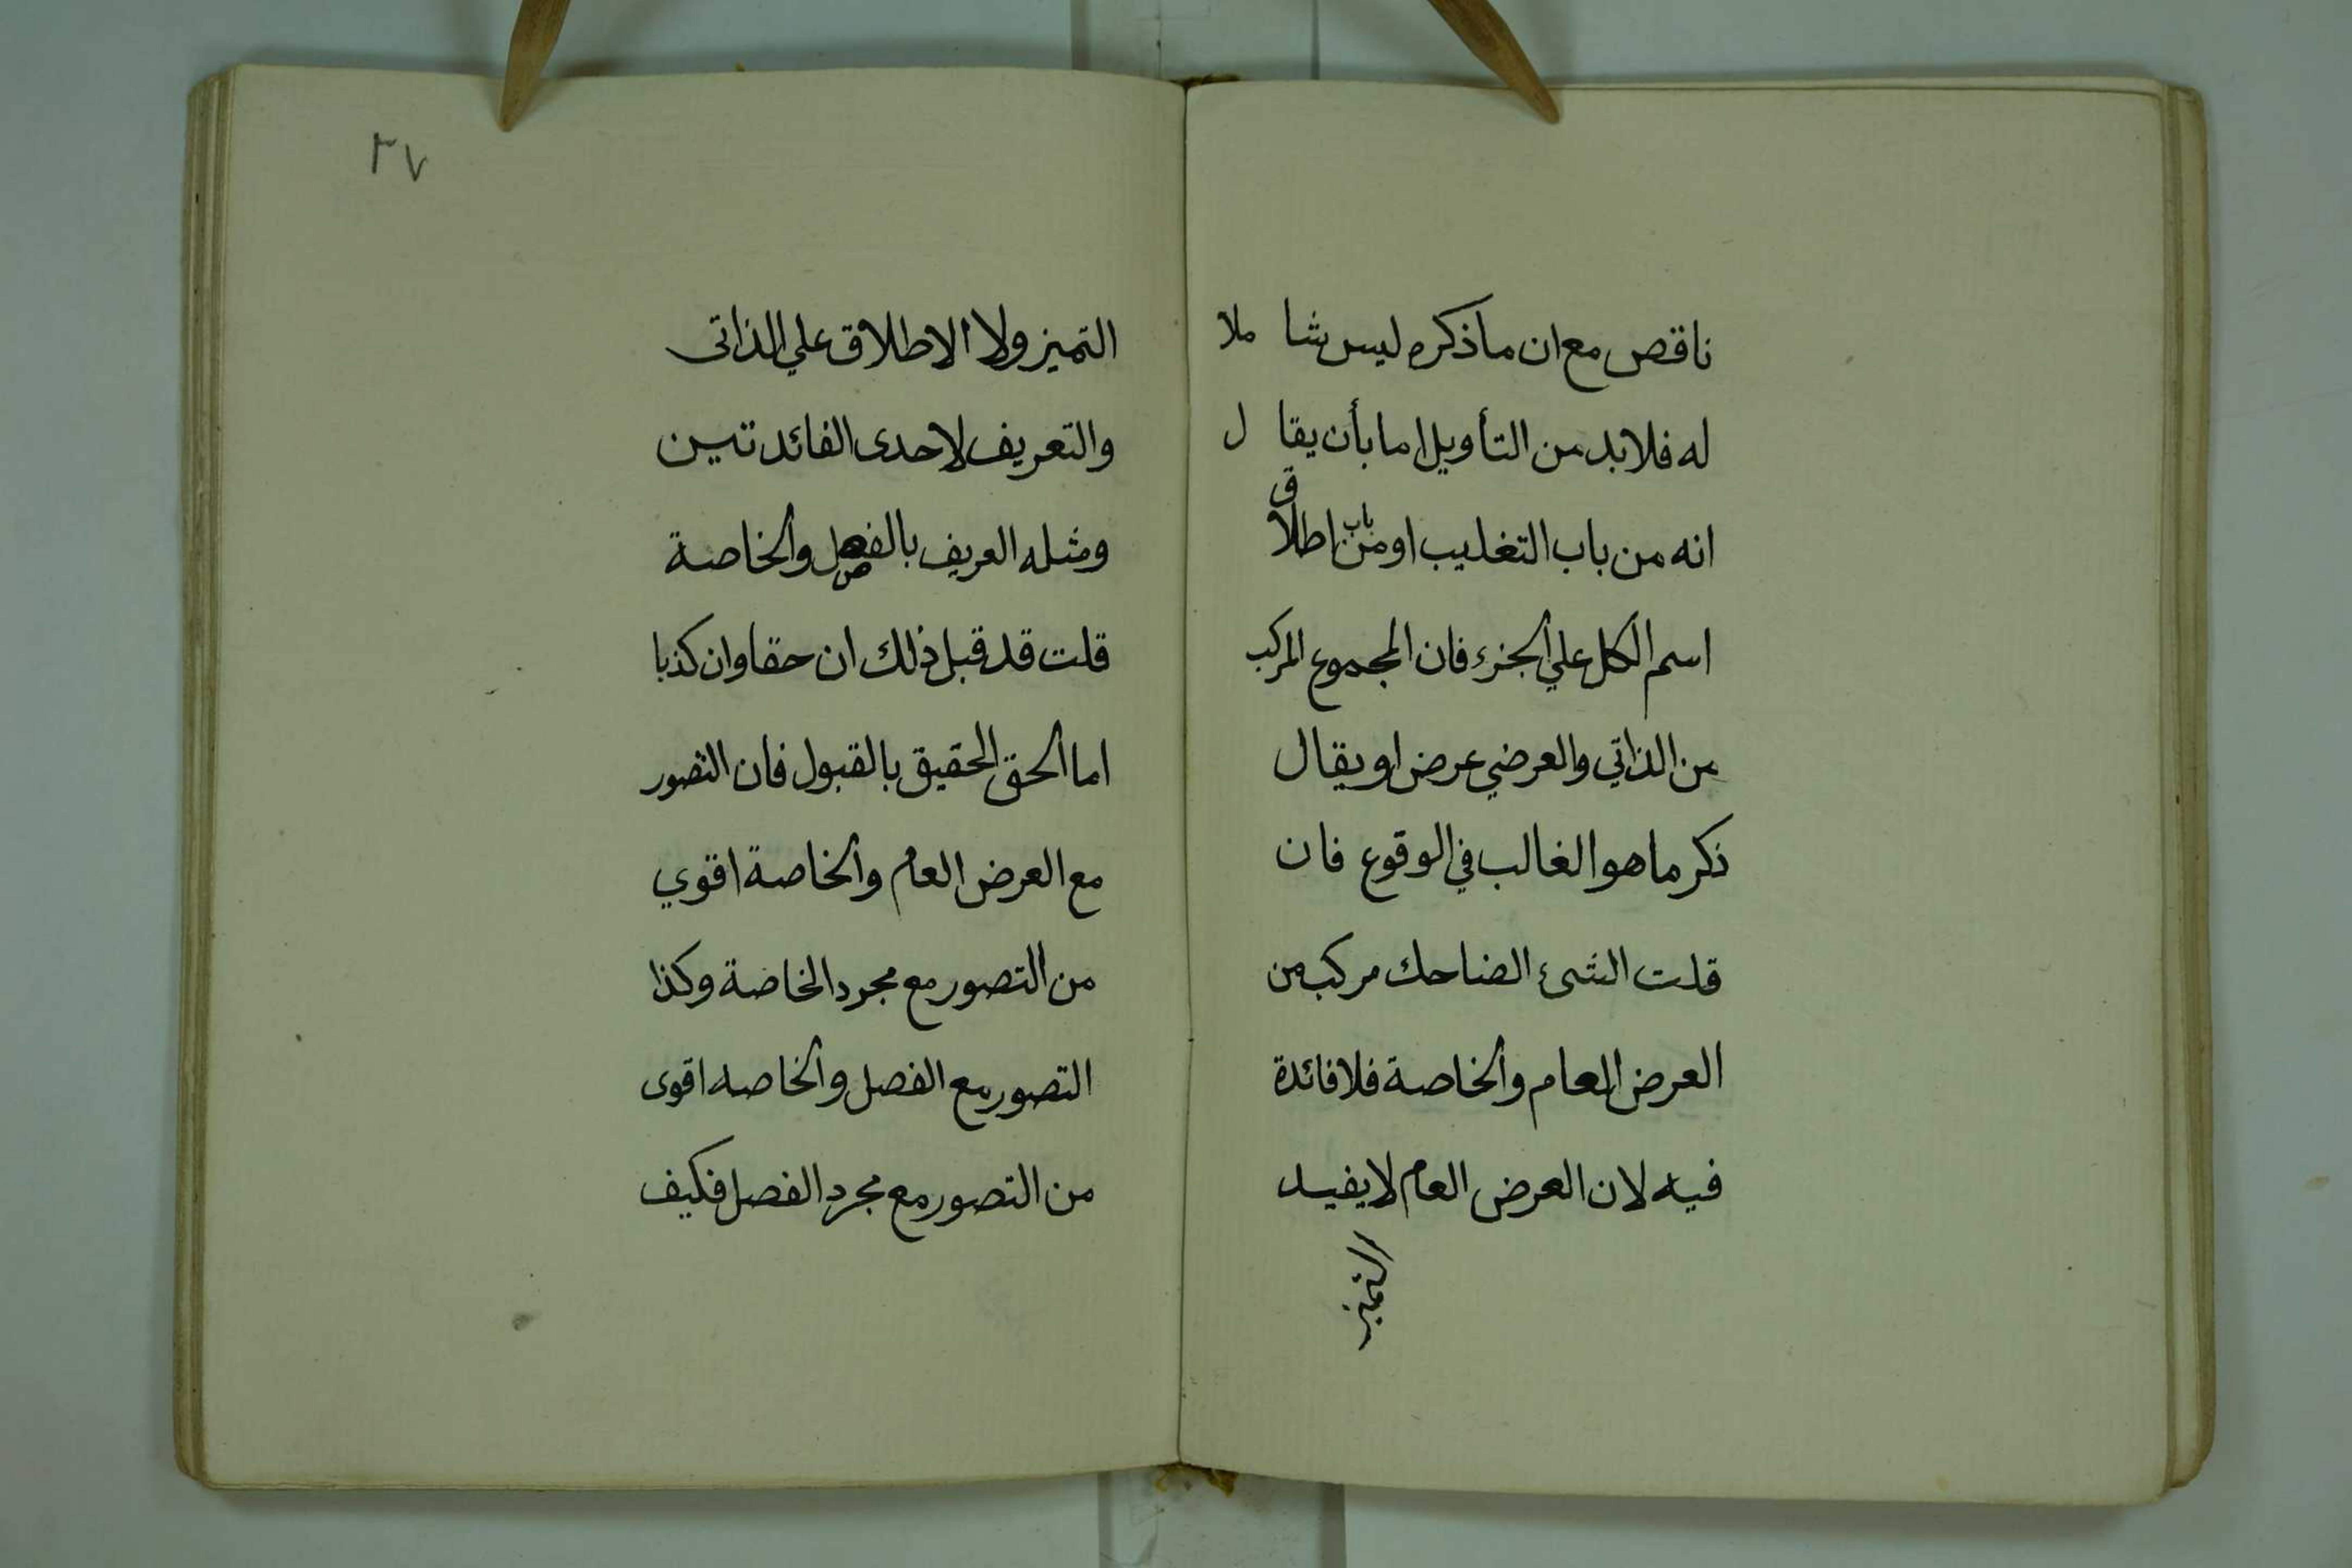 ناقص مع ان ما ذكره ليس شا ملا
له فلا بد من التأويل اما بأن يقا ل
انه من باب التغليب او من باب اطلاق
اسم الكل علي الجزء فان المجموع المركب
من الذاتي والعرضي عرض او يقال
ذكر ما هو الغالب في الوقوع فان
قلت الشئ الضاحك مركب من
العرض العام والخاصة فلا فائدة
فيه لان العرض العام لا يفيد
التميز
٣٧
التميز ولا الاطلاق علي الذاتى
والتعريف لاحدى الفائدتين
ومثله العريف بالفصل والخاصة
قلت قد قبل ذلك ان حقا وان كذبا
اما الحق الحقيق بالقبول فان التصور
مع العرض العام والخاصة اقوي
من التصور مع مجرد الخاصة وكذا
التصور مع الفصل والخاصه اقوى
من التصور مع مجرد الفصل فكيف